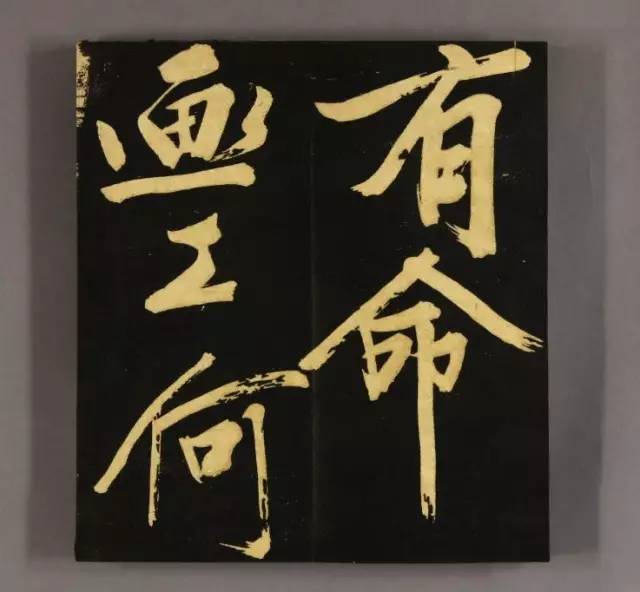 有命
画工何